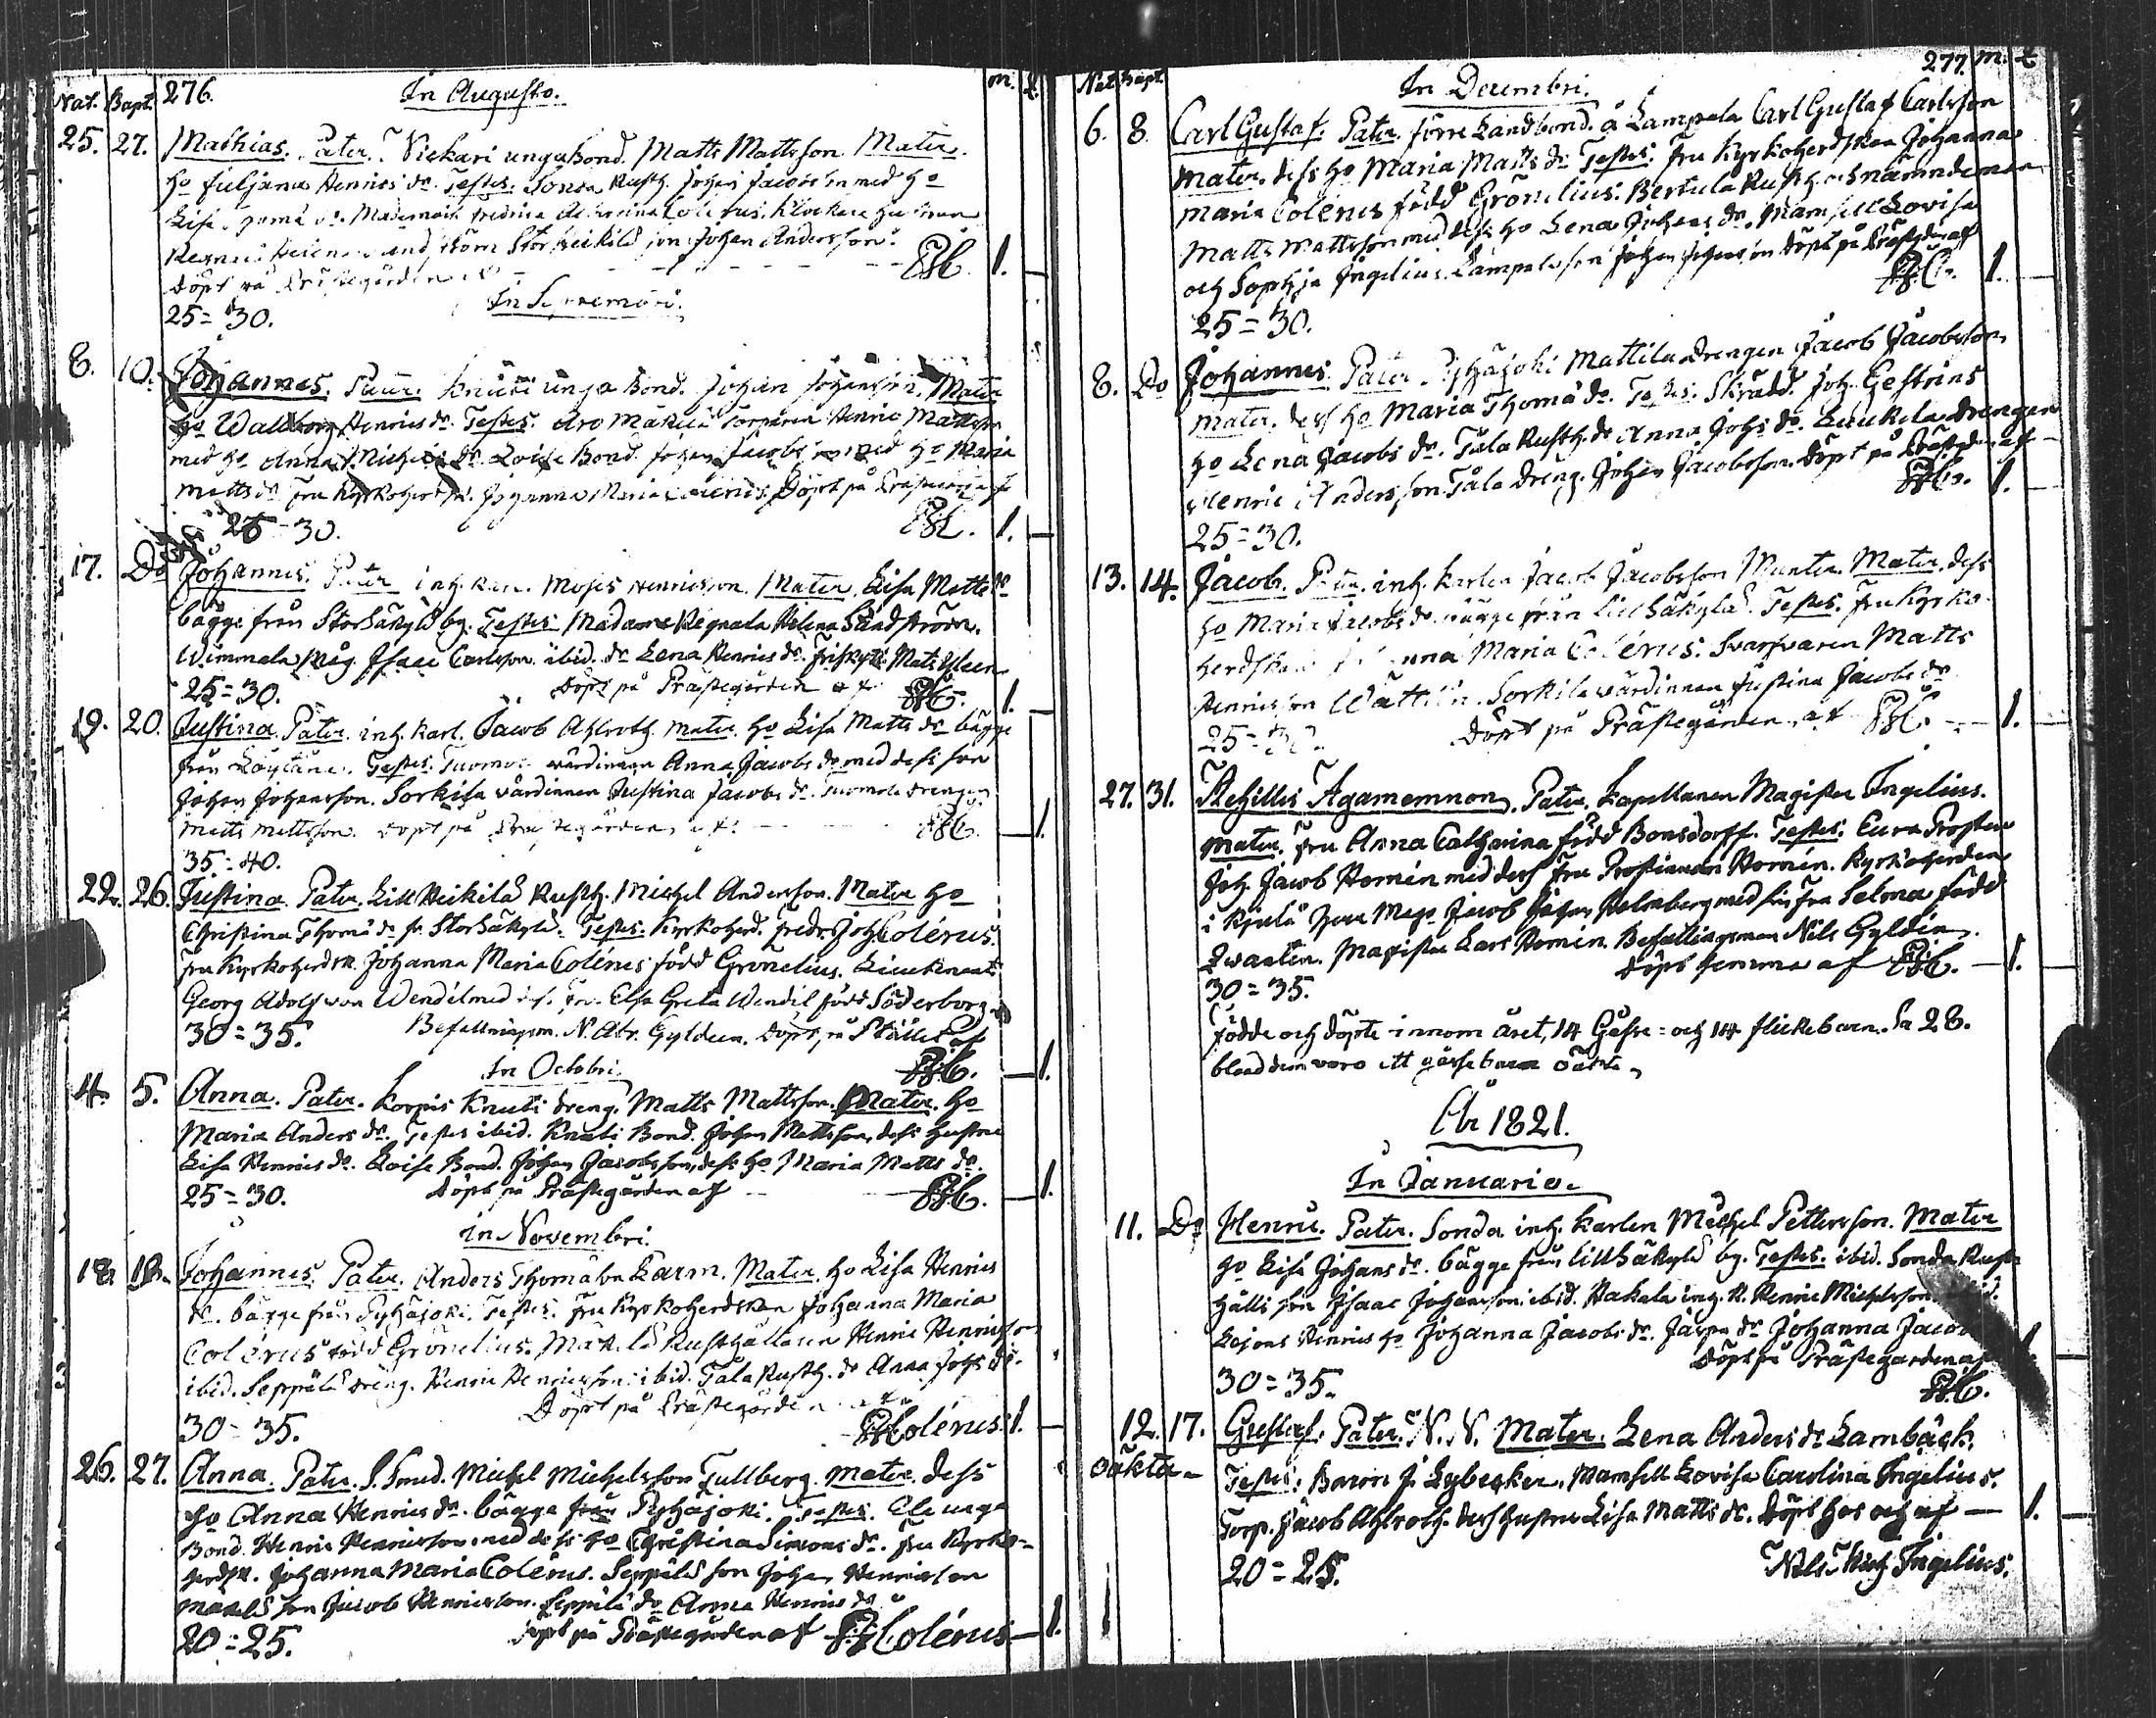 Nat. Bapt. 276. In Augusto. m. f.
25. 27. Mathias. Pater. Viekari unga Bond. Matts Mattsson. Mater.
ho Juljana Henrics dr. Testes. Sonda Rusth. Johan Jacobsson med ho
Lisa
Stor Heikild son Johan Andersson.
Döpt på Prästegården af FJC. 1.
25=30.
In Septembri.
8. 10. Johannes. Pater. Knuti unga Bond. Johan Johansson. Mater
ho Wallborg Henrics dr. Testes. Aro Torparen Henric Mattsson
med ho Anna Michels dr. Loise Bond. Johan Jacobsson med ho Maria
Matts dr. Fru Kyrkoherdsk. Johanna Maria Colérus. Döpt på Prästegården af
25=30. FJC. 1.
17. Do Johannes. Pater inh. Karl. Moses Henricsson. Mater. Lisa Matts dr
bägge från Storsäkylä by. Testes. Madame Regnala Helena Sandström.
Wimmala måg Isaac Carlsson. ibid. dr Lena Henrics dr.
25=30. Döpt på Prästegården af FJC. 1.
19. 20. Justina. Pater. inh. Karl. Jacob Ahlroth. Mater. ho Lisa Matts dr bägge
från Löytäne. Testes. Tuomola wärdinnan Anna Jacobs dr med dess son
Johan Johansson. Sorkila wärdinnan Justina Jacobs dr. Tuomola drengen
Matts Mattsson. Döpt på Prästegården af FJC. 1.
35=40.
22. 26. Justina. Pater. Lill Heikilä Rusth. Michel Andersson. Mater ho
Christina Thomä dr fr. Storsäkylä. Testes. Kyrkoherd. Fredr. Joh. Colérus.
Fru Kyrkoherdsk. Johanna Maria Colérus född Grönelius. Lieutenant
Georg Adolf von Wendel med dess Fru Elsa Greta Wendel född Söderborg
30=35. Befallningsm. N. Abr. Gyldeen. Döpt på Stället af
In Octobri. FJC. 1.
4. 5. Anna. Pater. Korpis Knuti dreng. Matts Mattsson. Mater. ho
Maria Anders dr. Testes ibid. Knuti Bond. Johan Mattsson, dess hustru
Lisa Henrics dr. Loise Bond. Johan Jacobsson, dess ho Maria Matts dr.
25=30. Döpt på Prästegården af FJC. 1.
in Novembri.
18. 19. Johannes. Pater. Anders Thomäson Larm. Mater. ho Lisa Henrics
dr. bägge från Pyhäjoki. Testes. Fru Kyrkoherdskan Johanna Maria
Colérus född Grönelius. Mäkilä Rusthållaren Henric Henricsson
ibid. Seppälä dreng. Henric Henricsson. ibid. Tåla Rusth. dr Anna Johs dr.
Döpt på Prästegården af
30=35. FJColérus. 1.
26. 27. Anna. Pater. S. Smed. Michel Michelsson Tullberg. Mater. dess
ho Anna Henrics dr. bägge från Pyhäjoki. Testes. unga
Bond. Henric Henricsson med dess ho Christina Simons dr. Fru Kyrko=
herdsk. Johanna Maria Colérus. Seppälä son Johan Henricsson
son Jacob Henricsson. Seppälä dr Anna Henrics dr.
20=25. Döpt på Prästegården af FJColérus 1.
Nat. Bapt. In Decembri. 277. m. f.
6. 8. Carl Gustaf. Pater. förre Landbond. å Lampala Carl Gustaf Carlsson
Mater. dess ho Maria Matts dr Testes. Fru Kyrkoherdskan Johanna
Maria Colérus född Grönelius. Bertula Rusth. och nämndeman
Matts Mattsson med dess ho Lena Johans dr. Mamsell Lovisa
och Sophja Ingelius. Lampala son Johan Johansson Döpt på Prästgården af
FJC. 1.
25=30.
8. Do Johannes. Pater. Pyhäjoki Mattila drengen Jacob Jacobsson
Mater. dess ho Maria Thomä dr. Testes. Skrädd. Joh. Gestrins
ho Lena Jacobs dr. Tåla Rusth. dr Anna Johs dr. Luukela drengen
Henric Andersson Tåla dreng. Johan Jacobsson. Döpt på Prästgården af
FJC. 1.
25=30.
13. 14. Jacob. Pater. inh. Karlen Jacob Jacobsson Munter. Mater. dess
ho Maria Jacobs dr. bägge från Lillsäkylä. Testes. Fru Kyrko-
herdskan Johanna Maria Colérus. Svarfvaren Matts
Henricsson Wättilin. Sorkila wärdinnan Justina Jacobs dr
25=30. Döpt på Prästegården, af FJC. 1.
27. 31. Achilles Agamemnon. Pater. Kapellanen Magister Ingelius.
Mater. Fru Anna Catharina född Bonsdorff. Testes. Eura Prosten
Joh. Jacob Homén med dess Fru Prostinnan Homén. Kyrkoherden
i Kjulå Herr Mag. Jacob Johan Malmberg med sin Fru Selma född
Magister Lars Homén. Befallingsman Nils Gyldén.
30=35. Döpt hemma af FJC. 1.
födde och döpte innom året, 14 Gåsse= och 14 flickebarn. Sa 28.
bland dem voro ett gåssebarn oäkta.
År 1821.
In Januario.
11. Do Henric. Pater. Sonda inh. Karlen Michel Pettersson. Mater
ho Lisa Johans dr. bägge från Lillsäkylä by. Testes. ibid. Sonda Rust-
hålls son Isaac Johansson. ibid. Hakala inh. K. Henric Michelsson.
Henrics ho Johanna Jacobs dr. dr Johanna Jacobs
Döpt på Prästegården af
30=35. FJC.
12. 17. Gustaf. Pater. N. N. Mater. Lena Anders dr Lambäck.
oäkta. Testes: Baron J. Lybecker, Mamsell Lovisa Carolina Ingelius.
Torp. Jacob Ahlroth. dess hustru Lisa Matts dr. Döpt hos och af 1.
20=25. Nils Ingelius.